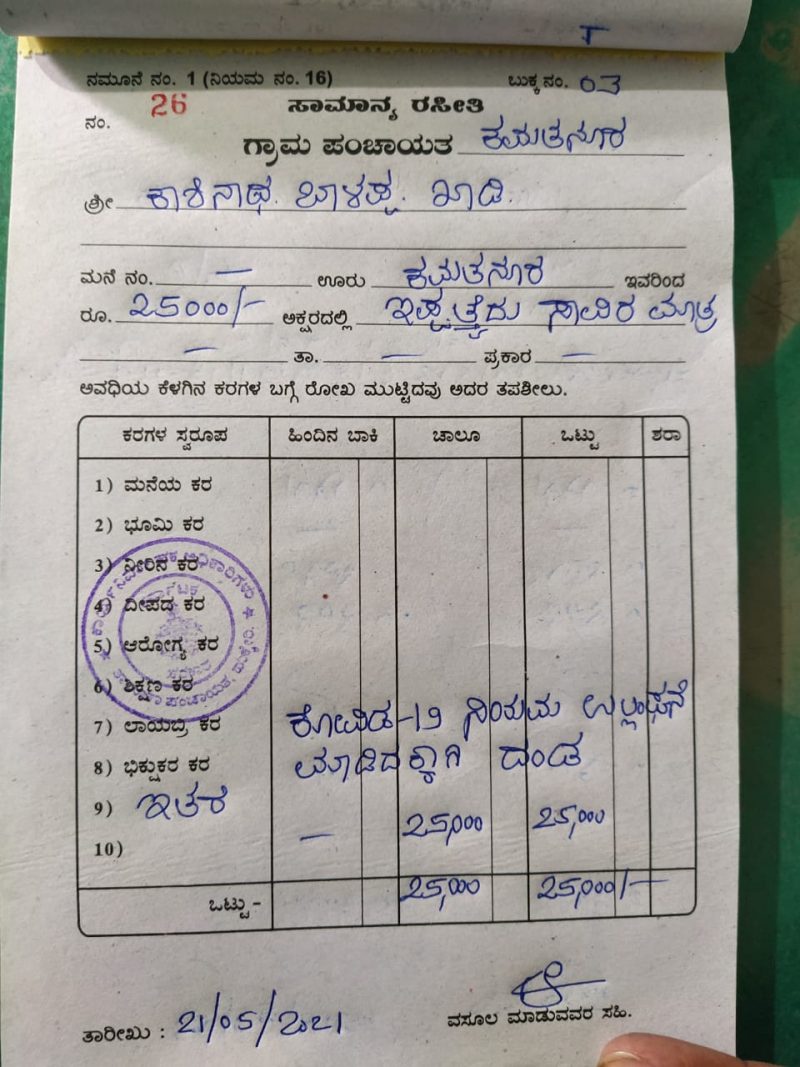 ನಮೂನೆ ನಂ. 1 (ನಿಯಮ ನಂ. 16) ಬುಕ್ಕ ನಂ. 03
ನಂ. 26 ಸಾಮಾನ್ಯ ರಸೀತಿ
ಗ್ರಾಮ ಪಂಚಾಯತ ಕಮತನೂರ
ಶ್ರೀ ಕಾಶಿನಾಥ. ಬಾಳಪ್ಪ. ಖಾಡಿ.
ಮನೆ ನಂ. — ಊರು ಕಮತನೂರ ಇವರಿಂದ
ರೂ. 25000/- ಅಕ್ಷರದಲ್ಲಿ ಇಪ್ಪತ್ತೈದು ಸಾವಿರ ಮಾತ್ರ
— ತಾ. — ಪ್ರಕಾರ —
ಅವಧಿಯ ಕೆಳಗಿನ ಕರಗಳ ಬಗ್ಗೆ ರೋಖ ಮುಟ್ಟಿದವು ಅದರ ತಪಶೀಲು.
ಕರಗಳ ಸ್ವರೂಪ ಹಿಂದಿನ ಬಾಕಿ ಚಾಲೂ ಒಟ್ಟು ಶರಾ
1) ಮನೆಯ ಕರ
2) ಭೂಮಿ ಕರ
3) ನೀರಿನ ಕರ
4) ದೀಪದ ಕರ
5) ಆರೋಗ್ಯ ಕರ
6) ಶಿಕ್ಷಣ ಕರ
7) ಲಾಯಬ್ರಿ ಕರ ಕೋವಿಡ-19 ನಿಯಮ ಉಲ್ಲಂಘನೆ
8) ಭಿಕ್ಷುಕರ ಕರ ಮಾಡಿದಕ್ಕಾಗಿ ದಂಡ
9) ಇತರೆ — 25,000 25,000
10)
ಒಟ್ಟು - 25,000 25,000/-
ತಾರೀಖು : 21/05/2021 ವಸೂಲ ಮಾಡುವವರ ಸಹಿ.